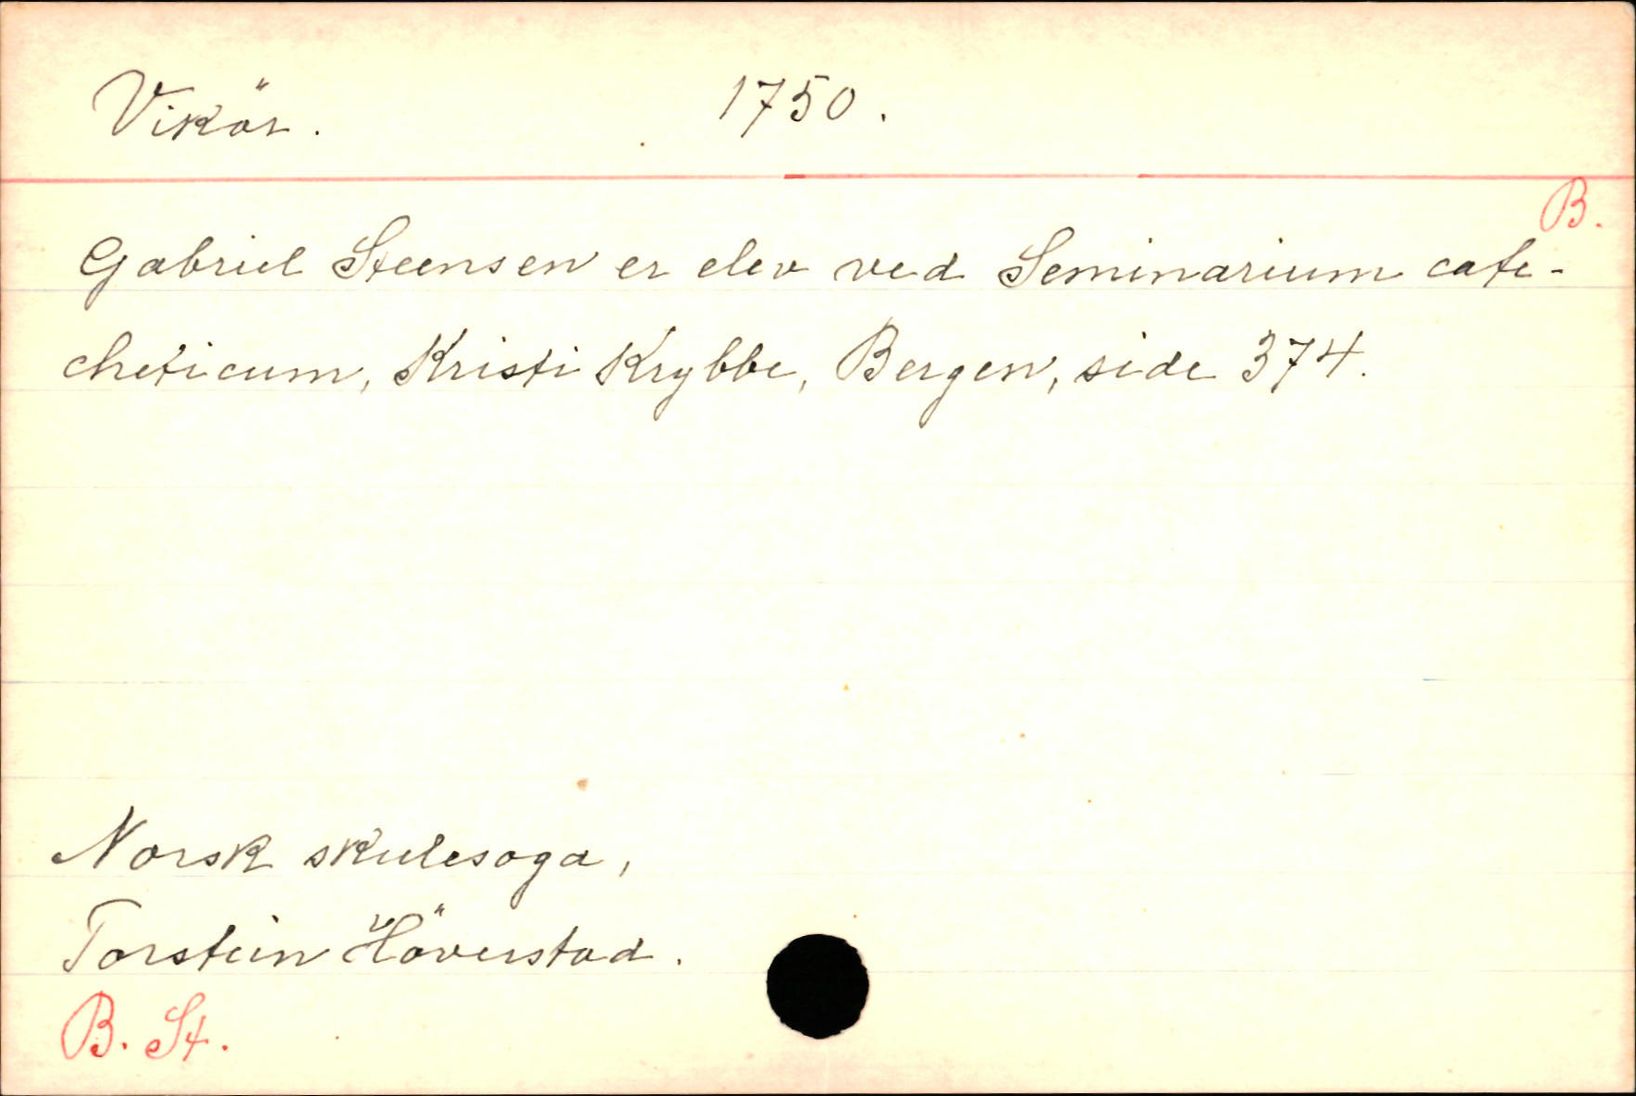 Vikör. 1750.
B.
Gabriel Steensen er elev ved Seminarium cate-
cheticum, Kristi Krybbe, Bergen, side 374.
Norsk skulesoga,
Torstein Höverstad.
B. St.